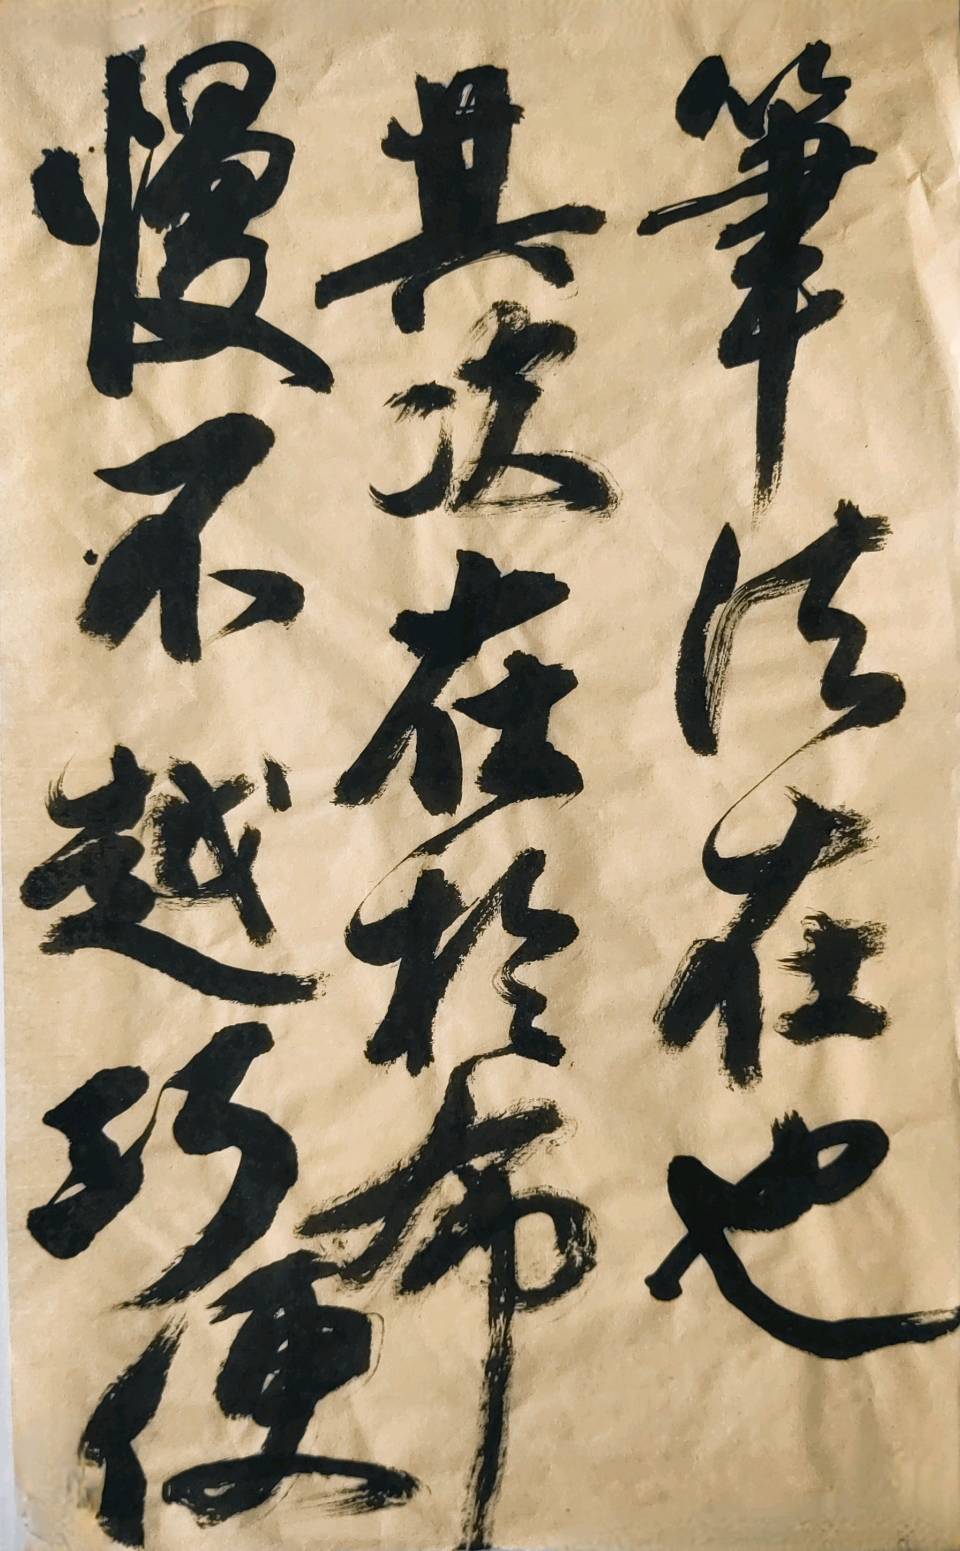 筆法在也
其次在於布
慢不越巧便